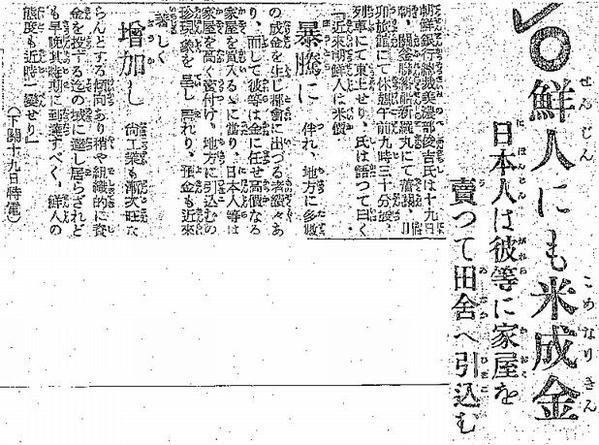 鮮人にも米成金
日本人は彼等に家屋を
賣つて田舎へ引込む
朝鮮銀行總裁美濃部俊吉氏は十九日
朝、關釜聯絡船新羅丸にて着關、
旅館にて休憇午前九時三十分發
列車にて東上せり、氏は語つて曰く
「近來朝鮮人は米價
暴騰に
伴れ、地方に多數
の成金を生じ都會に出づる者續々あ
り、而して彼等は金に任せ高價なる
家屋を買入るゝに當り、日本人等は
家屋を高く賣付け、地方に引込むの
珍現象を呈し居れり、預金も近來
著しく
増加し
商工業も漸次旺な
らんとする傾向あり稍や組織的に資
金を投ずる迄の域に達し居らざれど
も早晩其時期に到達すべく、鮮人の
態度も近時一變せり」
(下關十九日特電)